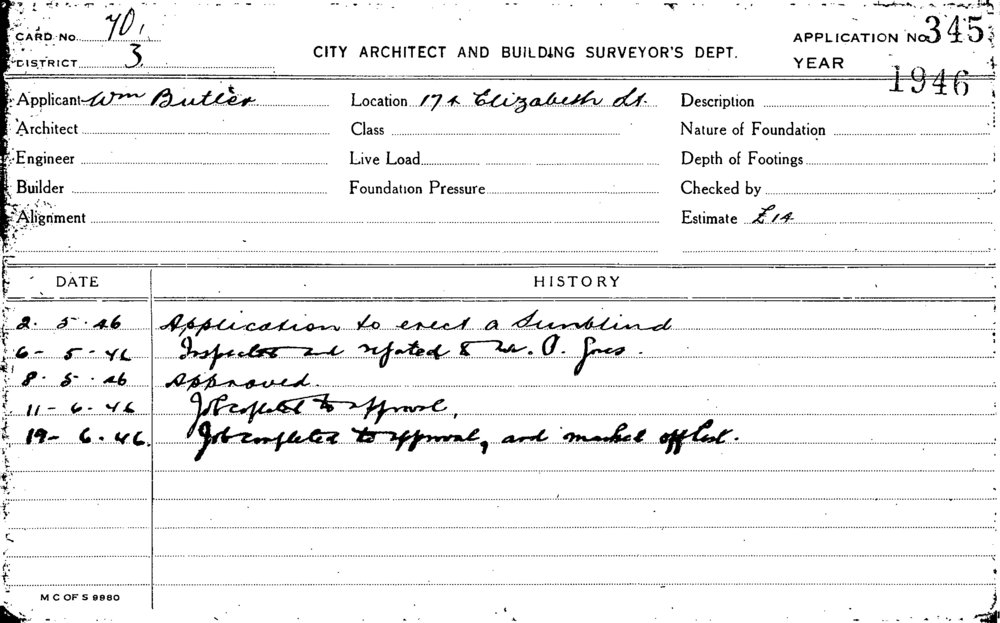 CARD No. 70,
DISTRICT 3
CITY ARCHITECT AND BUILDING SURVEYOR'S DEPT.
APPLICATION No. 345
YEAR 1946
Applicant Wm Butler
Location 174 Elizabeth St.
Description
Architect
Class
Nature of Foundation
Engineer
Live Load
Depth of Footings
Builder
Foundation Pressure
Checked by
Alignment
Estimate £14
DATE
HISTORY
2. 5. 46 Application to erect a Sunblind
6- 5. 46 Inspected and reported
8. 5. 46 Approved.
11- 6. 46 Job completed to approval,
19- 6. 46. Job completed to approval, and marked off list.
M C OF S 9980